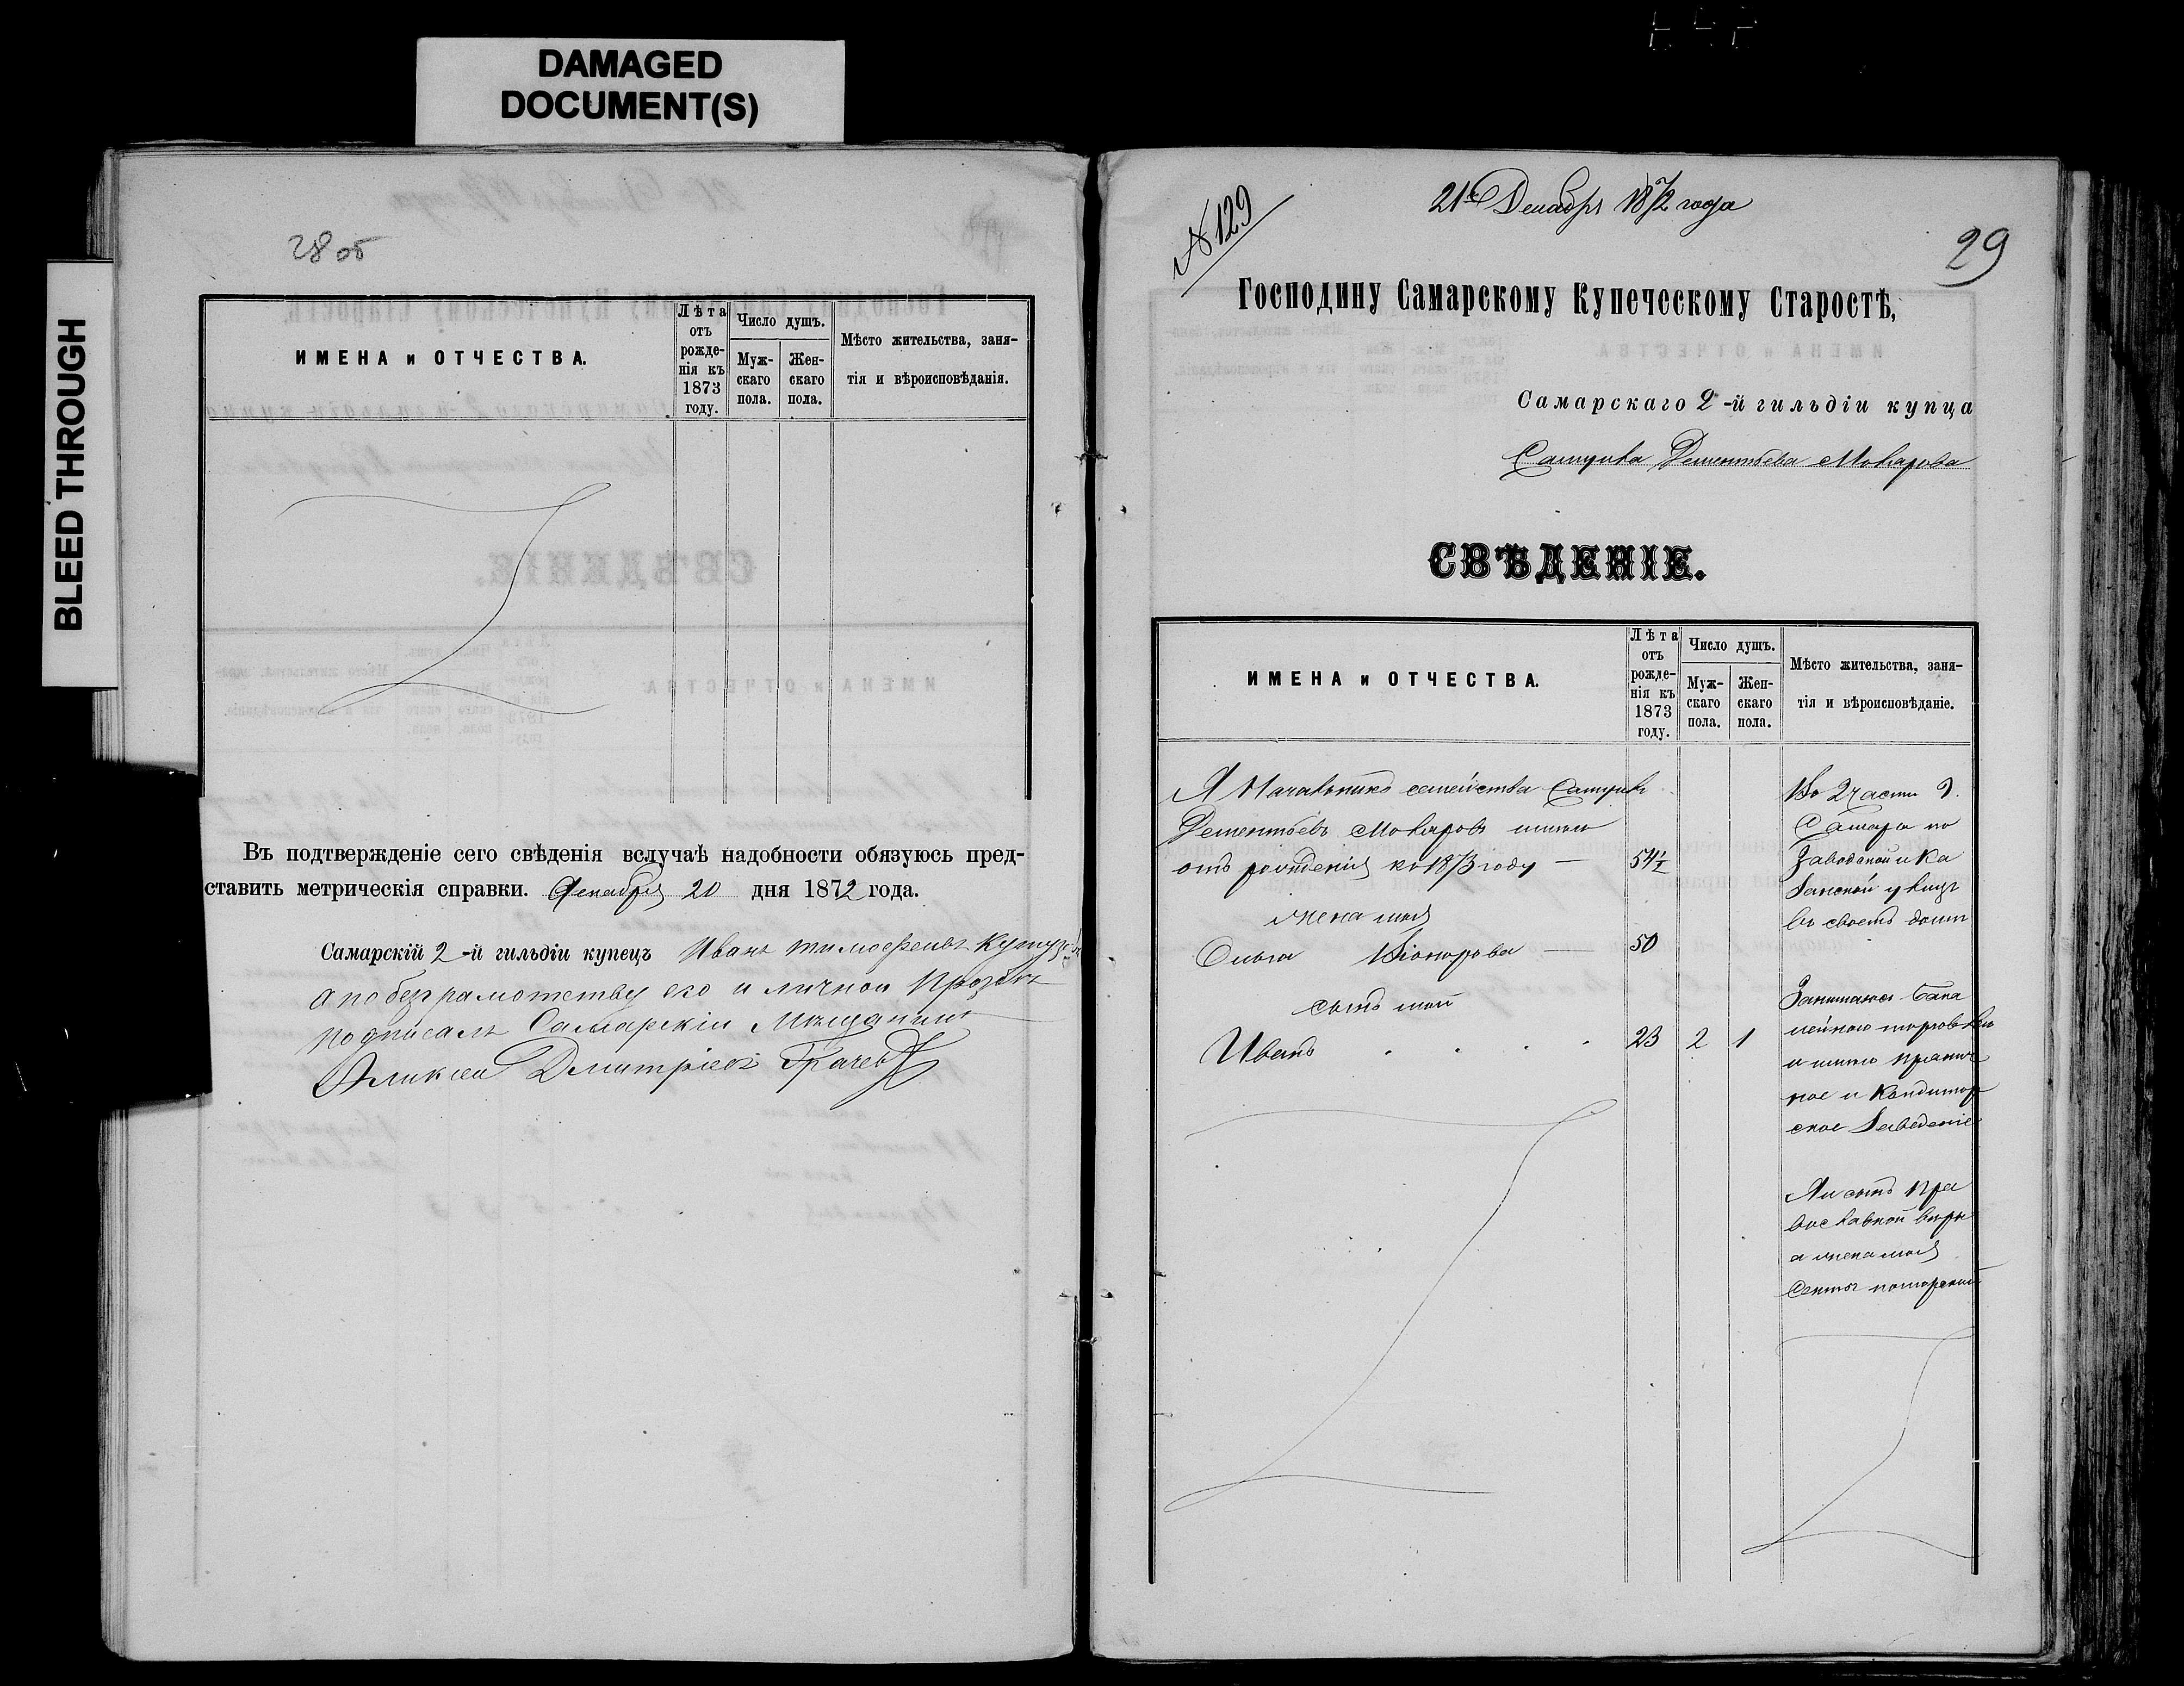 DAMAGED
DOCUMENT(S)
BLEED THROUGH
28 об
ИМЕНА и ОТЧЕСТВА.
Лѣта
отъ
рожде-
нія къ
1873
году.
Число душъ.
Муж-
скаго
пола.
Жен-
скаго
пола.
Мѣсто жительства, заня-
тія и вѣроисповѣданія.
Въ подтвержденіе сего свѣденія вслучаѣ надобности обязуюсь пред-
ставить метрическія справки. Декабря 20 дня 1872 года.
Самарскій 2-й гильдіи купецъ Иванъ тимофеивъ
а по безграмотству его и личнои прозбѣ
подписалъ Самарскіи Мѣщанинъ
Аликсеи Дмитріевъ Грачев
№ 129
21го Декабря 1872 года
29
Господину Самарскому Купеческому Старостѣ,
Самарскаго 2-й гильдіи купца
Дементьева Макарова
СВѢДЕНІЕ.
ИМЕНА и ОТЧЕСТВА.
Лѣта
отъ
рожде-
нія къ
1873
году.
Число душъ.
Муж-
скаго
пола.
Жен-
скаго
пола.
Мѣсто жительства, заня-
тія и вѣроисповѣданіе.
Я Начальникъ семейства
Дементьевъ Макаровъ имею
отъ рожденія къ 1873 году — 54½
жена моя
Ольга — 50
сынъ мой
Иванъ . . . . 23 2 1
Во 2 части г.
Самары по
Заводской и Ка
занской улицѣ
въ своемъ доме
Занимаюсь бака
лейною торговлею
и имею пранич
ное и Кандитор
ское Заведеніе
Я и сынъ пра
вославной веры
а жена моя
Секты поморской